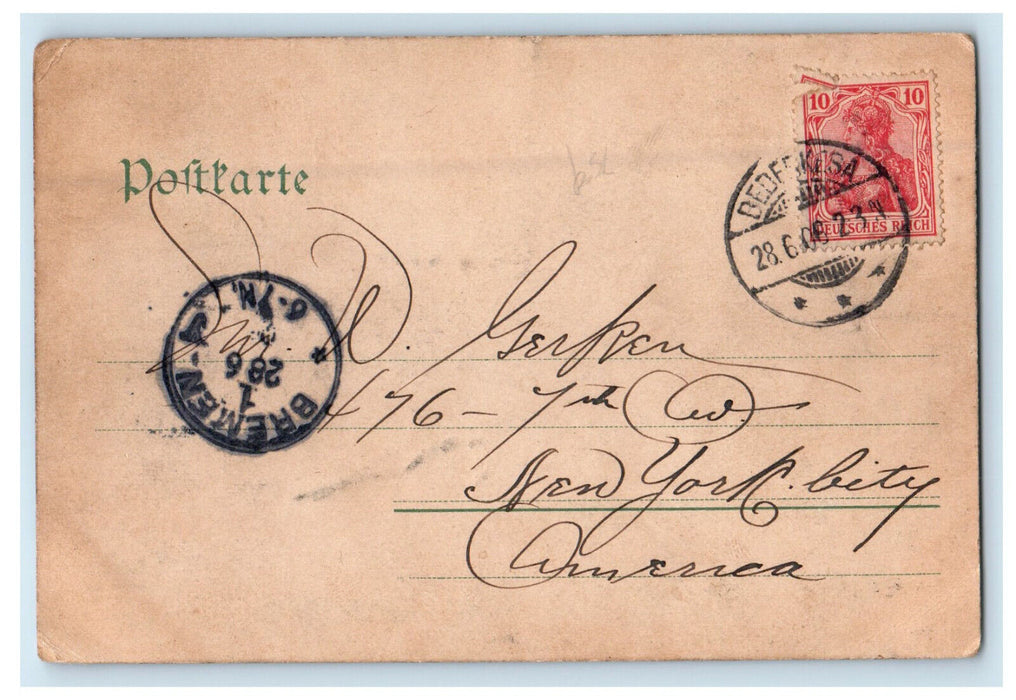 Postkarte
10 10
DEUTSCHES REICH
BEDERKESA
28.6.06 2-3 N
BREMEN
1
28 6
6-7 N.
D. Gerken
476 - 7th Av.
New York. City
America